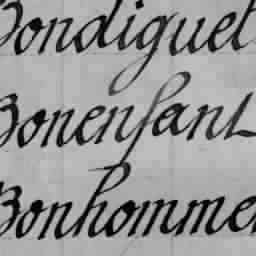 Bondiguet
Bonenfant
Bonhomme